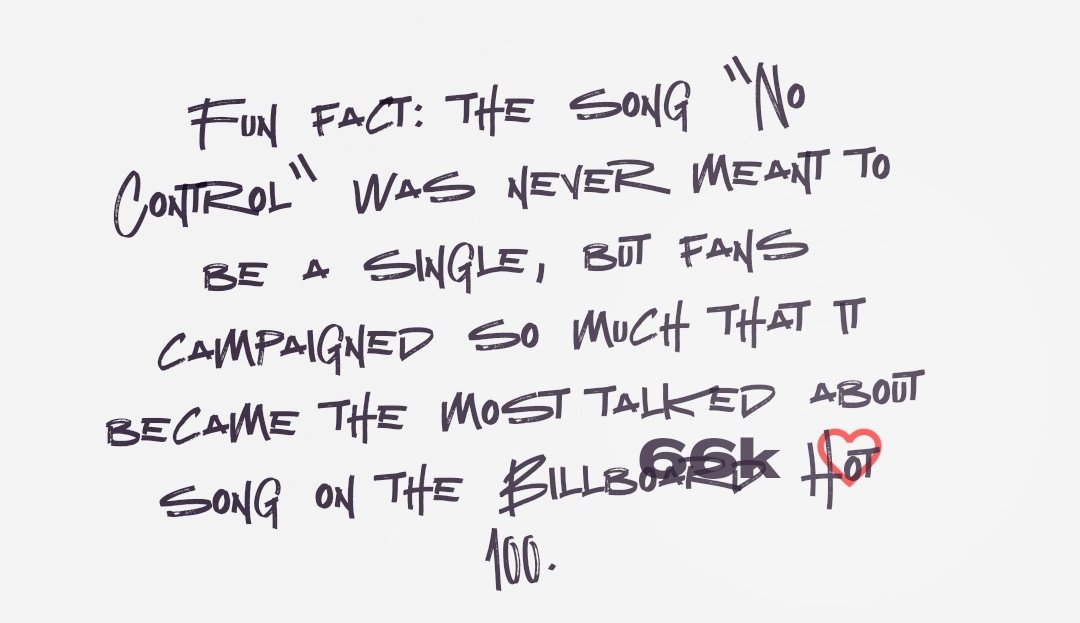 Fun fact: the song "No
Control" was never meant to
be a single, but fans
campaigned so much that it
became the most talked about
song on the Billboard Hot
100.
66k